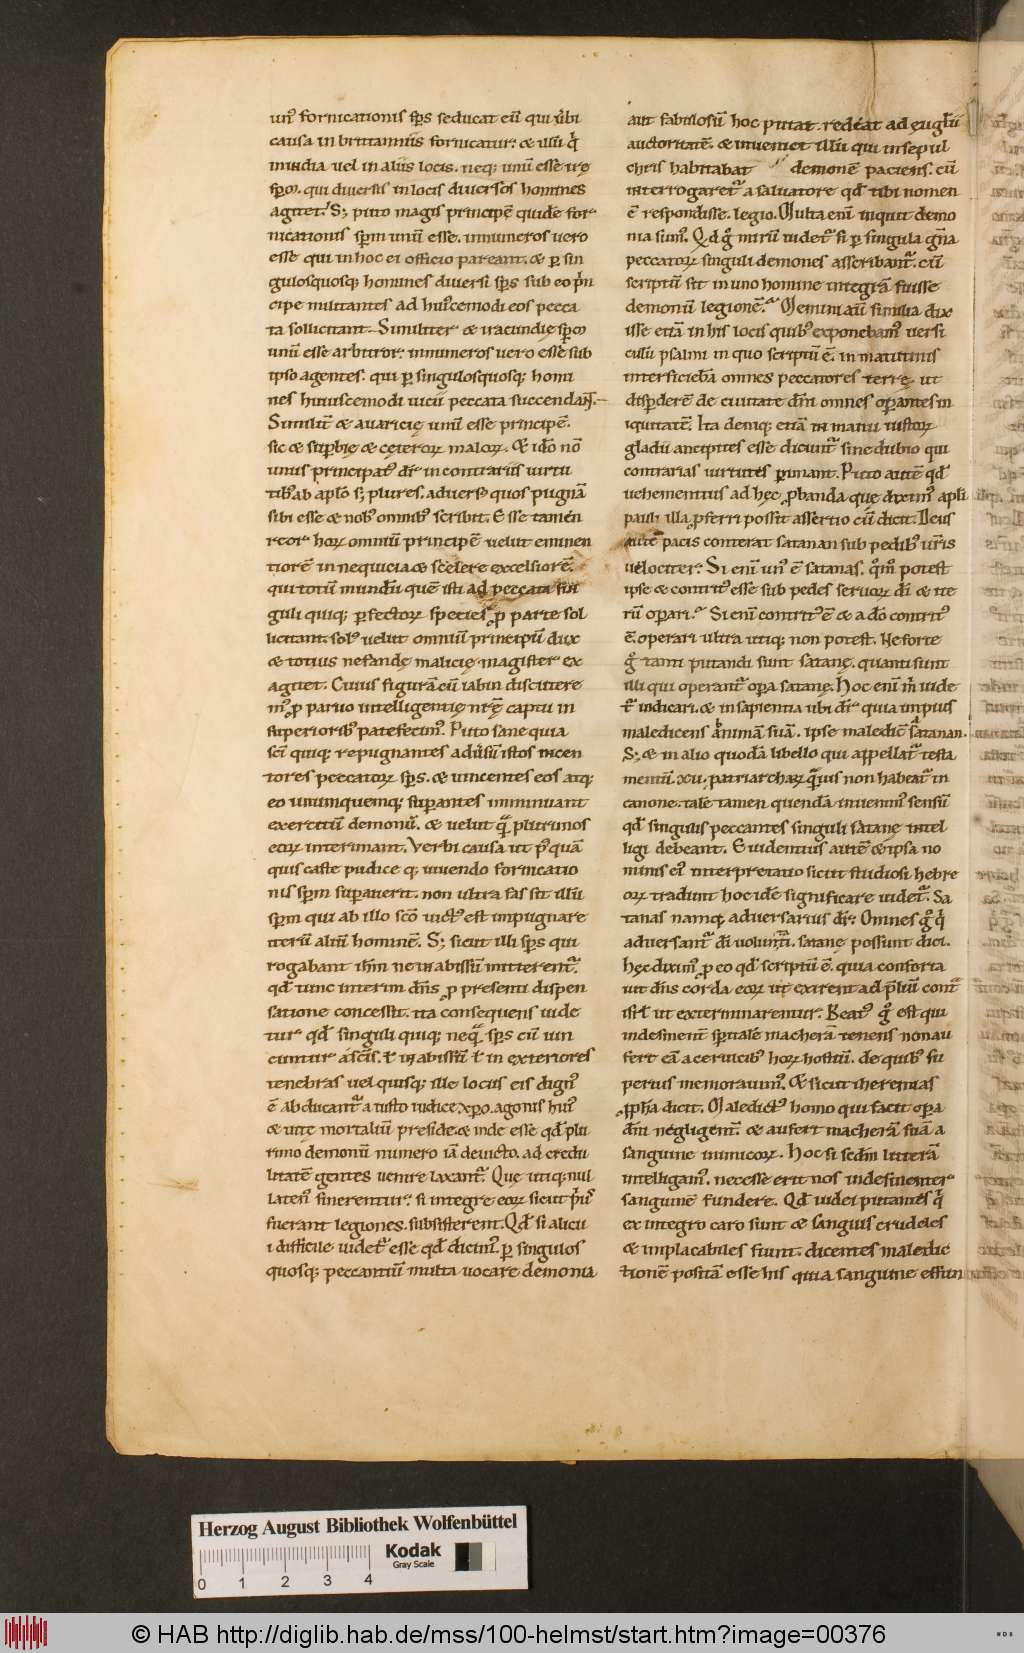 un' fornicationis sps seducat eū qui ůbi
causa in britanniis fornicatur. & illū q̇
in india uel in aliis locis. neq; unū esse ue
spm̄. qui diuersis in locis diuersos homines
agitet. S; puto magis principē quidē for
nicationis spm̄ unū esse. innumeros uero
esse qui in hoc ei officio pareant. & p̱ sin
gulosquosq; homines diuersi sps sub eo p̓n
cipe militantes ad hui'cemodi eos pecca
ta sollicitant. Similiter & iracundię spm̄
unū esse arbitror. innumeros uero esse sub
ipso agentes. qui p̱ singulosquosq; homi
nes huiuscemodi uicii peccata succendaṅt.
Similit̄ & auaricię unū esse principē.
sic & sup̱bię & ceteroꝝ maloꝝ. & id̄o nō
unus principat' dr̄ in contrariis uirtu
tib' ab ap̄lo s; plures. aduers' quos pugnā
sibi esse & nob' omnib' scribit. Esse tamen
reor hoꝝ omniū principē uelut eminen
tiorē in nequicia & scelere excelsiorē.
qui totū mundū quē isti ad peccata sin
guli quiq; p̱fectoꝝ species ꝓ parte sol
licitant. sol' uelut omniū principū dux
& totius nefandę malicię magister ex
agitet. Cuius figurā cū iabin discutere
m' ꝓ paruo intelligentię nr̄ę captu in
superiorib' patefecim'. Puto sane quia
sc̄i quiq; repugnantes adūsū istos incen
tores peccatoꝝ sps. & uincentes eos atq;
eo unumquemq; sup̱antes imminuant
exercitū demonū. & uelut q̄ plurimos
eoꝝ interimant. Verbi causa ut p̓ quā
quis caste pudice q; uiuendo fornicatio
nis spm̄ sup̱auerit. non ultra fas sit illū
spm̄ qui ab illo sc̄o uict' est impugnare
iterū aliū hominē. S; sicut illi sps qui
rogabant ih̄m ne in abissū mitterent̄.
qd̄ tunc interim dn̄s ꝓ presenti dispen
satione concessit. ita consequens uide
tur qd̄ singuli quiq; neq̄ sps cū uin
cuntur a sc̄is. ł in abissū ł in exteriores
tenebras uel quisq; ille locus eis dign'
ē abducant̄ a iusto iudice xp̄o. agonis hui'
& uitę mortaliū preside. & inde esse qd̄ plu
rimo demonū numero iā deuicto. ad credu
litatē gentes uenire laxant̄. Que utiq; nul
laten' sinerentur. si integre eoꝝ sicut p̓n'
fuerant legiones. subsisterent. Qd̄ si alicu
i difficile uidet̄ esse qd̄ dicim'. p̱ singulos
quosq; peccantiū multa uocare demonia
aut fabulosū hoc putat. redeat ad euglii
auctoritatē. & inueniet illū qui in sepul
chris habitabat demonē paciens. cū
interrogaret̄ a saluatore qd̄ tibi nomen
ē respondisse. legio. Multa enī inquit demo
nia sum'. Qd g̊ mirū uidet̄ si p̱ singula gn̄a
peccatoꝝ singuli demones asscribant̄. cū
scriptū sit in uno homine integrā fuisse
demonū legionē. Memini aūt similia dix
isse etiā in his locis quib' exponebam' uersi
culū psalmi in quo scriptū ē. in matutinis
interficiebā omnes peccatores terrę. ut
disp̱derē de ciuitate dn̄i omnes op̱antes in
iquitatē. Ita deniq; etiā in manu iustoꝝ
gladii ancipites esse dicunt̄ sine dubio qui
contrarias uirtutes p̱imant. Puto autē qd̄
uehementius ad hęc ꝓbanda que dixim' ap̄li
pauli illa ꝓferri possit assertio cū dicit. Deus
autē pacis conterat satanan sub pedib' ur̄is
uelociter. Si enī un' ē satanas. qm̊ potest
ipse & contrit' esse sub pedes seruoꝝ dī & ite
rū op̱ari. Si enī contrit' ē & a dō contrit'
ē. operari ultra utiq; non potest. Ne forte
g̊ tanti putandi sunt satanę. quanti sunt
illi qui operant̄ op̱a satanę. Hoc enī m̓ uide
t̄ indicari. & in sapientia ubi dr̄ quia impius
maledicens animam suā. ipse maledic̄ satanan.
S; & in alio quodā libello qui appellat̄ testa
mentū .xii. patriarchaꝝ q̄uis non habeat̄ in
canone. talē tamen quendā inuenim' sensū
qd̄ singulis peccantes singuli satane intel
ligi debeant. Euidentius autē & ipsa no
minis ei' interpretatio sicut studiosi hebre
oꝝ tradunt hoc idē significare uidet̄. Sa
tanas namq; aduersarius dr̄. Omnes g̊ q̓
aduersant̄ dī uoluntati. satanę possunt dici.
Hęc dixim' ꝓ eo qd̄ scriptū ē. quia conforta
uit dn̄s corda eoꝝ ut exirent ad p̓liū cont̄
isrł ut exterminarentur. Beat' g̊ est qui
indesinent̄ sp̄italē macherā tenens non au
fert eā a ceruicib' hoꝝ hostiū. de quib' su
perius memorauim'. & sicut iheremias
ꝓph̄a dicit. Maledict' homo qui facit op̱a
dn̄i negligent̄. & aufert macherā suā a
sanguine inimicoꝝ. Hoc si sedm̄ litterā
intelligam'. necesse erit nos indesinenter
sanguinē fundere. Qd̄ iudei putantes q̓
ex integro caro sunt & sanguis crudeles
& implacabiles fiunt. dicentes maledic
tionē positā esse his quia sanguine effun
Herzog August Bibliothek Wolfenbüttel
Kodak
Gray Scale
0 1 2 3 4
© HAB http://diglib.hab.de/mss/100-helmst/start.htm?image=00376